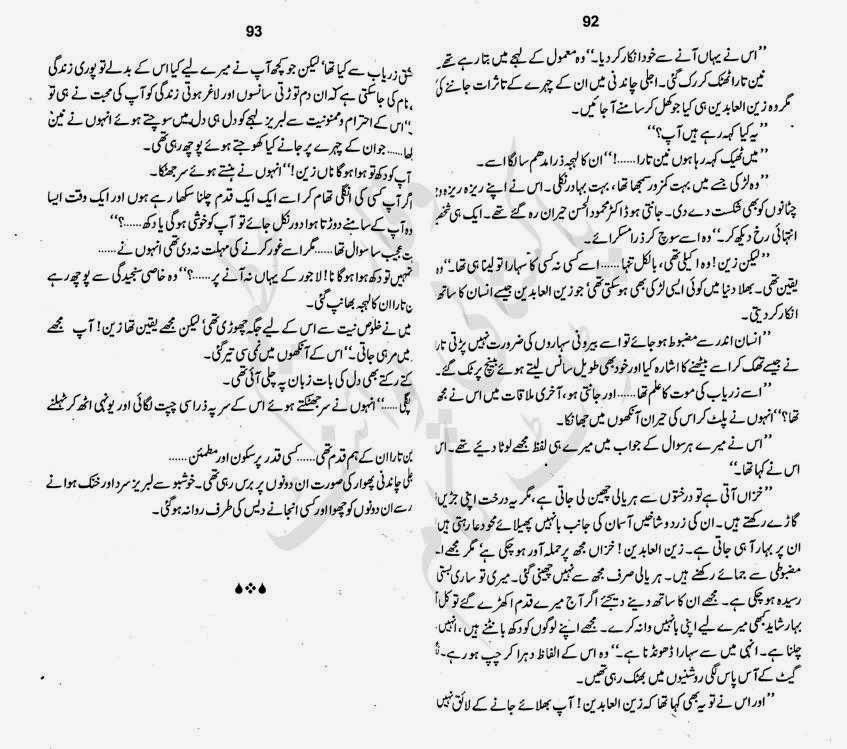 92
"اس نے یہاں آنے سے خود انکار کر دیا۔" وہ معمول کے لہجے میں بتا رہے تھے۔
نین تارا ٹھٹک کر رک گئی۔ اجلی چاندنی میں ان کے چہرے کے تاثرات جاننے کی
مگر وہ زین العابدین ہی کیا جو کھل کر سامنے آ جائیں۔
"یہ کیا کہہ رہے ہیں آپ؟"
"میں ٹھیک کہہ رہا ہوں نین تارا......!" ان کا لہجہ ذرا مدھم سا لگا اسے۔
"وہ لڑکی جسے میں بہت کمزور سمجھا تھا، بہت بہادر نکلی۔ اس نے اپنے ریزہ ریزہ
چٹانوں کو بھی شکست دے دی۔ جانتی ہو ڈاکٹر محمود الحسن حیران رہ گئے تھے۔ ایک ہی شخص
انتہائی رخ دیکھ کر۔" وہ اسے سوچ کر ذرا مسکرائے۔
"لیکن زین! وہ اکیلی تھی، بالکل تنہا...... اسے کسی نہ کسی کا سہارا تو لینا ہی تھا۔" وہ
یقین تھی۔ بھلا دنیا میں کوئی ایسی لڑکی بھی ہو سکتی تھی جو زین العابدین جیسے انسان کا ساتھ
انکار کر دیتی۔
"انسان اندر سے مضبوط ہو جائے تو اسے بیرونی سہاروں کی ضرورت نہیں پڑتی تارا
نے جیسے تھک کر اسے بیٹھنے کا اشارہ کیا اور خود بھی طویل سانس لیتے ہوئے بینچ پر ٹک گئے۔
"اسے زریاب کی موت کا علم تھا...... اور جانتی ہو، آخری ملاقات میں اس نے مجھ
تھا؟" انہوں نے پلٹ کر اس کی حیران آنکھوں میں جھانکا۔
"اس نے میرے ہر سوال کے جواب میں میرے ہی لفظ مجھے لوٹا دیئے تھے۔ اس
اس نے کہا تھا۔"
"خزاں آتی ہے تو درختوں سے ہریالی چھین لی جاتی ہے، مگر یہ درخت اپنی جڑیں
گاڑے رکھتے ہیں۔ ان کی زرد و شاخیں آسمان کی جانب بانہیں پھیلائے محو دعا رہتی ہیں
ان پر بہار آ ہی جاتی ہے۔ زین العابدین! خزاں مجھ پر حملہ آور ہو چکی ہے' مگر مجھے ا
مضبوطی سے جمائے رکھنے ہیں۔ ہریالی صرف مجھ سے نہیں چھینی گئی۔ میری تو ساری بستی
رسیدہ ہو چکی ہے۔ مجھے ان کا ساتھ دینے دیجئے اگر آج میرے قدم اکھڑ گئے تو کل
بہار شاید کبھی میرے لیے اپنی بانہیں وا نہ کرے۔ مجھے اپنے لوگوں کو دکھ بانٹنے ہیں، انہیں
چلنا ہے۔ انہی میں سے سہارا ڈھونڈنا ہے۔" وہ اس کے الفاظ دہرا کر چپ ہو رہے۔
گیٹ کے آس پاس لگی روشنیوں میں بھٹک رہی تھیں۔
"اور اس نے تو یہ بھی کہا تھا کہ زین العابدین! آپ بھلائے جانے کے لائق نہیں
93
زریاب سے کیا تھا' لیکن جو کچھ آپ نے میرے لیے کیا اس کے بدلے تو پوری زندگی
نام کی جا سکتی ہے کہ ان دم توڑتی سانسوں اور لاغر ہوتی زندگی کو آپ کی محبت نے ہی تو
"اس کے احترام و ممنونیت سے لبریز لہجے کو دل ہی دل میں سوچتے ہوئے انہوں نے نین
...... جو ان کے چہرے پر جانے کیا کھوجتے ہوئے پوچھ رہی تھی۔
آپ کو دکھ تو ہوا ہوگا ناں زین!" انہوں نے ہنستے ہوئے سر جھٹکا۔
اگر آپ کسی کی انگلی تھام کر اسے ایک ایک قدم چلنا سکھا رہے ہوں اور ایک وقت ایسا
وہ آپ کے سامنے دوڑتا ہوا دور نکل جائے تو آپ کو خوشی ہوگی یا دکھ......؟"
عجیب سا سوال تھا...... مگر اسے غور کرنے کی مہلت نہ دی تھی انہوں نے......
تمہیں تو دکھ ہوا ہوگا نا! لاجور کے یہاں نہ آنے پر......؟" وہ خاصی سنجیدگی سے پوچھ رہے
تارا ان کا لہجہ بھانپ گئی۔
میں نے خلوص نیت سے اس کے لیے جگہ چھوڑی تھی' لیکن مجھے یقین تھا زین! آپ مجھے
میں مر ہی جاتی۔" اس کے آنکھوں میں نمی سی تیر گئی۔
رکتے رکتے بھی دل کی بات زبان پہ چلی آئی تھی۔
پگلی......" انہوں نے سر جھٹکتے ہوئے اس کے سر پہ ذرا سی چپت لگائی اور یونہی اٹھ کر ٹہلنے
تارا ان کے ہم قدم تھی...... کسی قدر پرسکون اور مطمئن......
چاندنی پھوار کی صورت ان دونوں پر برس رہی تھی۔ خوشبو سے لبریز سرد اور خنک ہوا نے
سے ان دونوں کو چھوا اور کسی انجانے دیس کی طرف روانہ ہو گئی۔